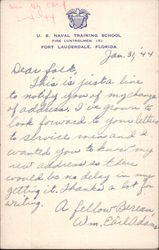 U. S. NAVAL TRAINING SCHOOL
FIRE CONTROLMEN (R)
FORT LAUDERDALE, FLORIDA
Jan. 31, '44
Dear folk,
This is just a line
to notify you of my change
of address. I've grown to
look forward to your letters
to service men and I
wanted you to know my
new address so there
would be no delay in my
getting it. Thanks a lot for
writing.
A fellow Berean
Wm.